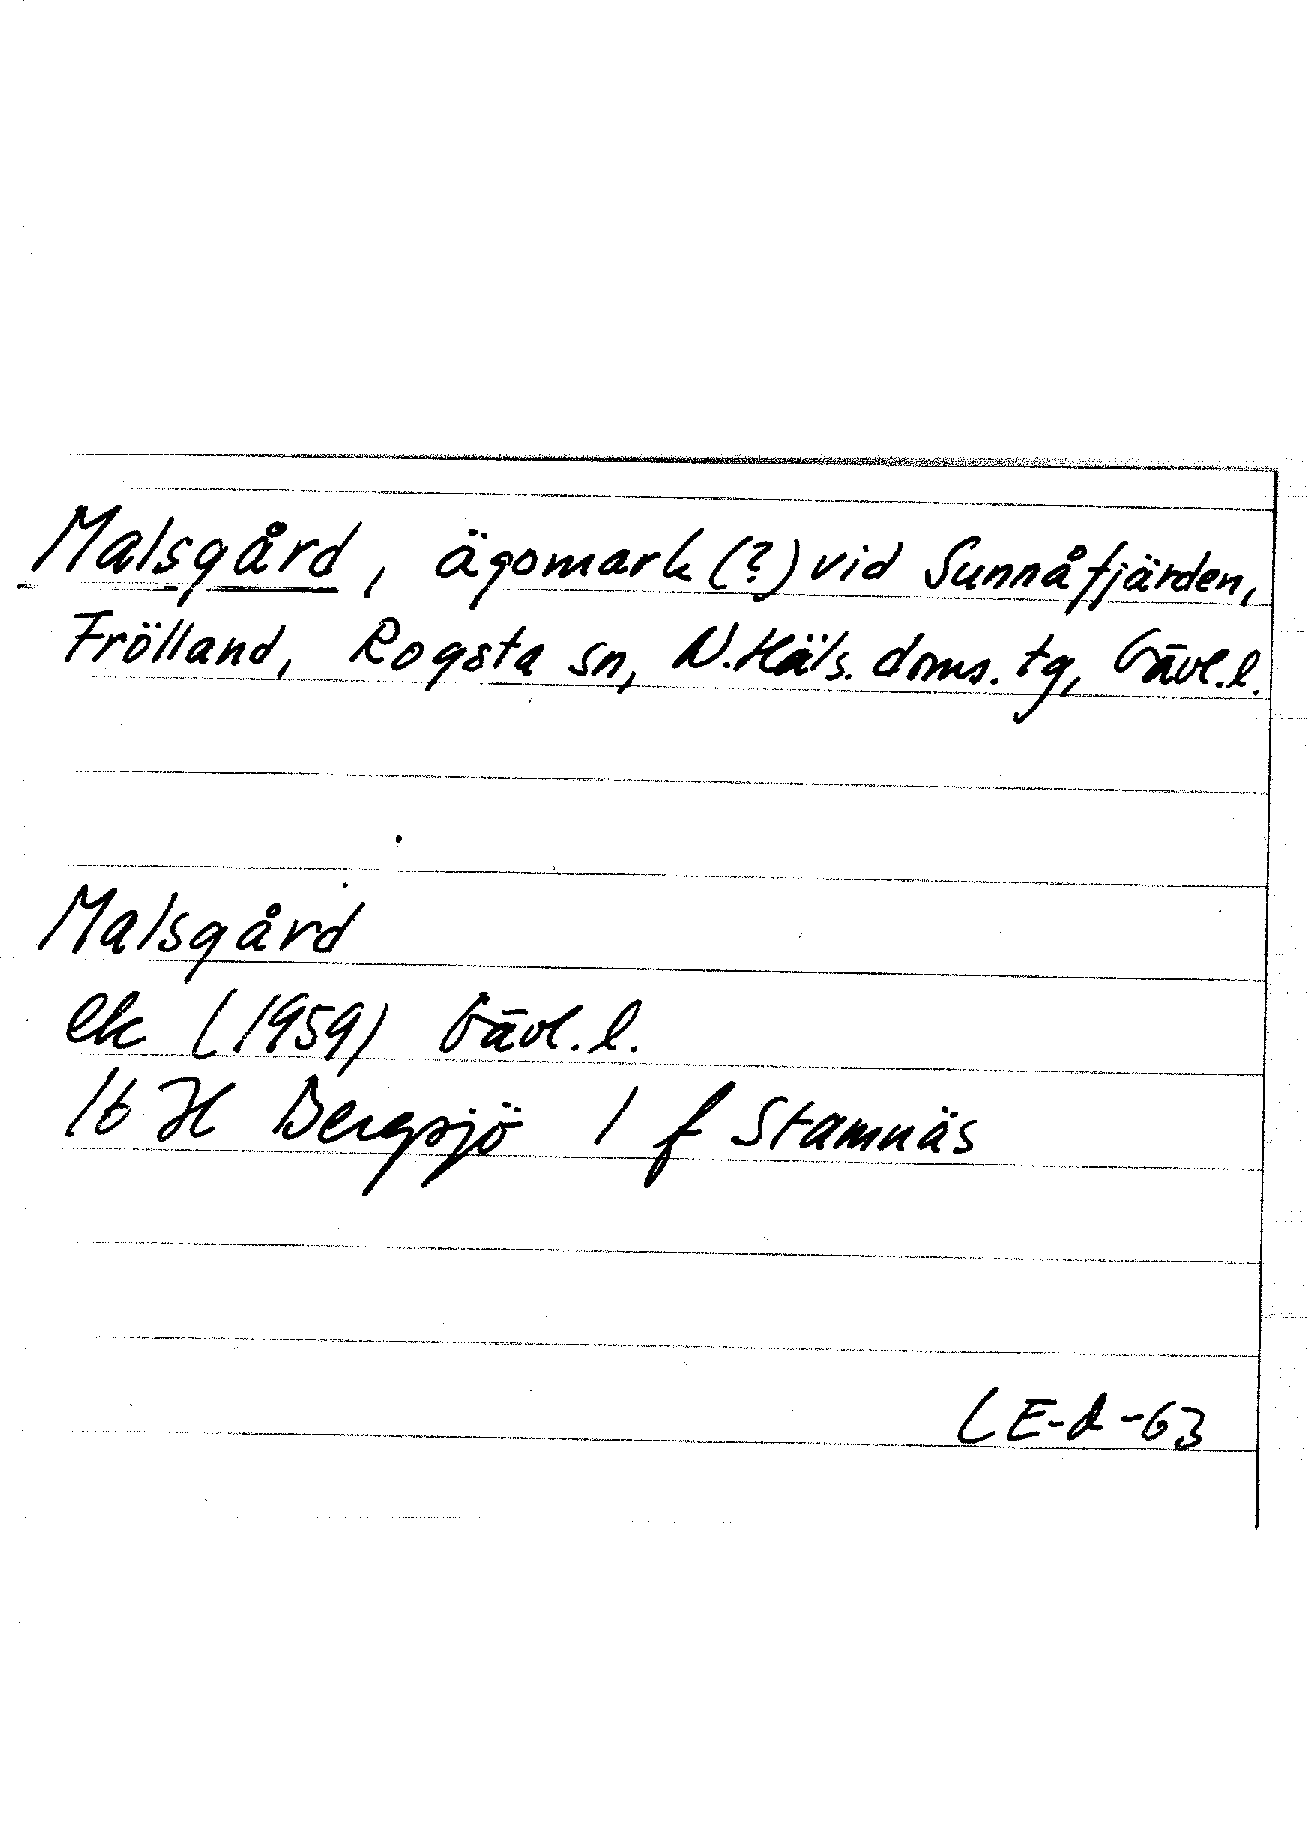 Malsgård, ägomark (?) vid Sunnåfjärden,
Frölland, Rogsta sn, N. Häls. doms. tg, Gävl. l.
Malsgård
ek (1959) Gävl. l.
16 H Bergsjö 1 f Stamnäs
LE-d-63